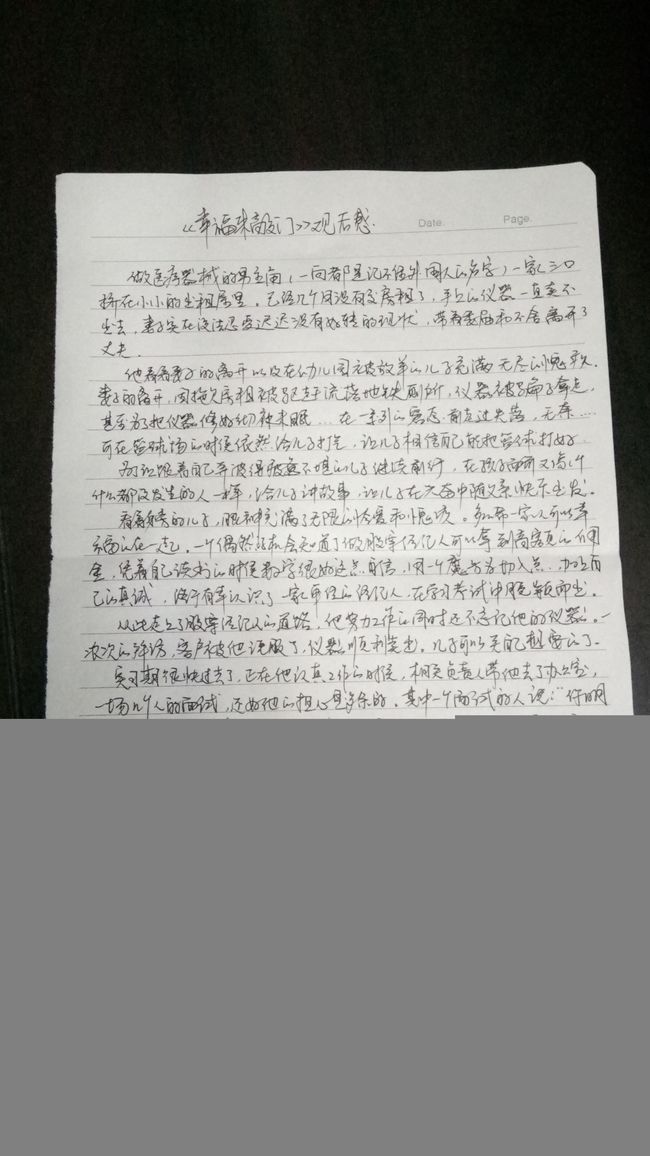 《幸福来敲门》观后感.
Date.
Page.
做医疗器械的男主角(一向都是记不住外国人的名字)一家三口
挤在小小的出租房里。已经几个月没有交房租了,手上的仪器一直卖不
出去,妻子实在没法忍受迟迟没有好转的现状,带着委屈和不舍离开了
丈夫.
他看着妻子的离开以及在幼儿园被放单的儿子充满无尽的愧疚.
妻子的离开,因拖欠房租被赶去流落地铁厕所,仪器被骗子拿走,
甚至为了把仪器修好彻夜未眠....在一系列的 走过失落,无奈....
可在篮球场的时候依然给儿子打气,让儿子相信自己能把篮球打好
为让跟着自己奔波得疲惫不堪的儿子继续前行,在孩子面前又像个
什么都没发生的人一样,给儿子讲故事,让儿子在 中随父亲快乐出发.
看着 的儿子,眼神充满了无限的怜爱和愧疚。 一家人可以幸
福的在一起。一个偶然的机会知道了做股票经纪人可以拿到高额的佣
金,凭着自己读书的时候数学很好这点自信,用一个魔方为切入点,加上自
己的真诚,终于有幸认识了一家 的经纪人,在学习考试中脱颖而出.
从此走上了股票经纪人的道路,他努力工作的同时还不忘记他的仪器。一
次次的 ,客户被他说服了,仪器顺利卖出。儿子可以买自己想要的了.
实习期很快过去了,正在他认真工作的时候,相关负责人带他去了办公室,
一场几个人的面试,还好他的担心是多余的。其中一个面试的人说:“你明